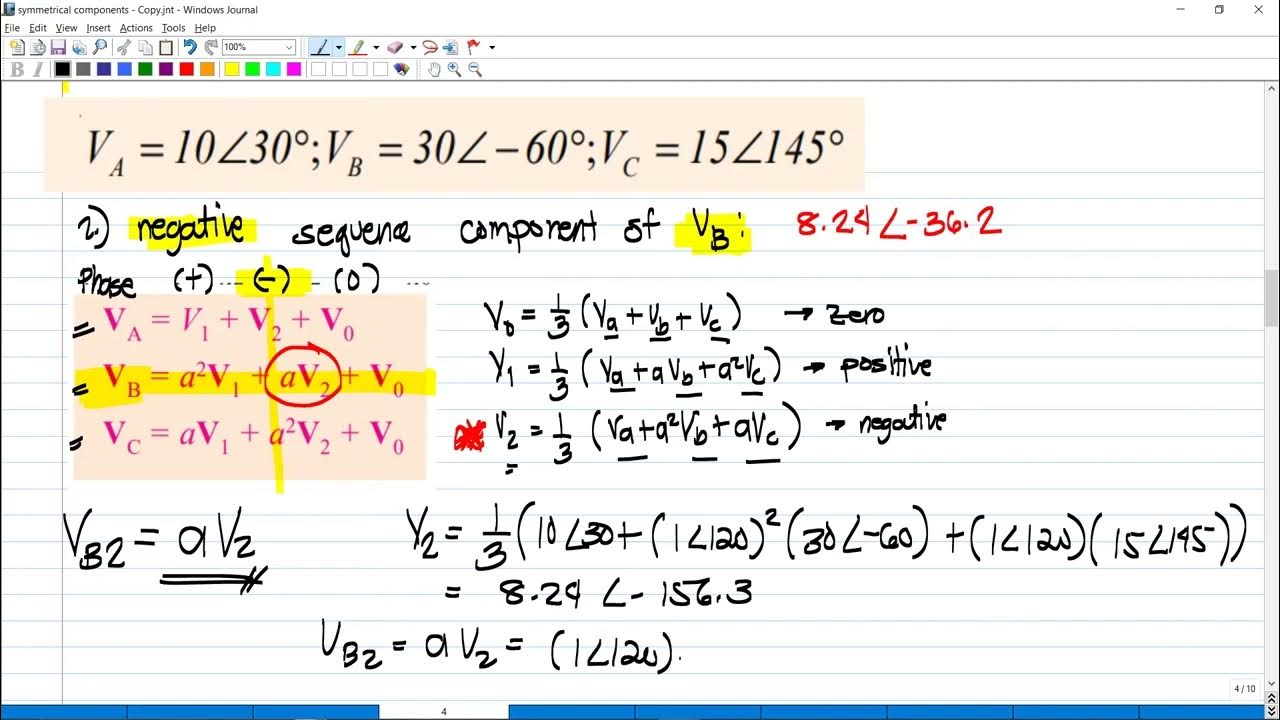 symmetrical components - Copy.jnt - Windows Journal
File Edit View Insert Actions Tools Help
100%
B I
V_A = 10∠30°; V_B = 30∠−60°; V_C = 15∠145°
2.) negative sequence component of V_B: 8.24∠-36.2
Phase (+) (-) (0)
= V_A = V_1 + V_2 + V_0
= V_B = a²V_1 + aV_2 + V_0
= V_C = aV_1 + a²V_2 + V_0
V_0 = 1/3 (Va + Vb + Vc) → zero
V_1 = 1/3 (Va + aVb + a²Vc) → positive
V_2 = 1/3 (Va + a²Vb + aVc) → negative
=
V_B2 = aV_2
V_2 = 1/3 (10∠30 + (1∠120)² (30∠-60) + (1∠120)(15∠145))
= 8.24 ∠-156.3
V_B2 = aV_2 = (1∠120).
4 / 10
4